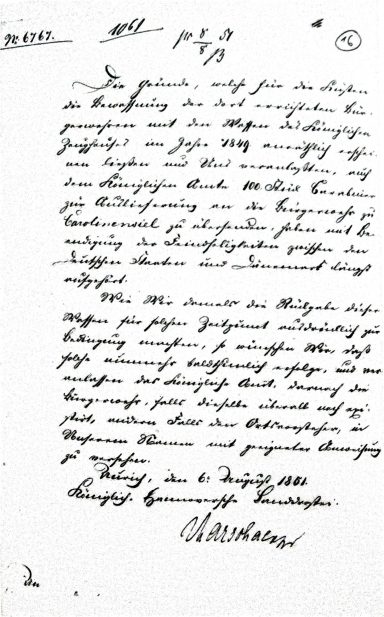 No. 6767.
1061
pr 8/8 51
16
Die Gründe, welche für die Küsten
die Bewaffnung der dort errichteten Bür-
gerwehren mit den Waffen des Königlichen
Zeughauses im Jahre 1849 anräthlich erschei-
nen ließen und Uns veranlaßten, auch
dem Königlichen Amte 100 Stück Carabiner
zur Auslieferung an die Bürgerwehr zu
Carolinensiel zu übersenden, haben mit Be-
endigung der Feindseligkeiten zwischen den
deutschen Staaten und Dänemark längst
aufgehört.
Wie Wir damals die Rückgabe dieser
Waffen für solchen Zeitpunct ausdrücklich zur
Bedingung machten, so wünschen Wir, daß
solche nunmehr baldthunlich erfolge, und ver-
anlassen das Königliche Amt, darnach die
Bürgerwehr, falls dieselbe überall noch exi-
stirt, andern Falls den Ortsvorsteher, in
Unserem Namen mit geeigneter Anweisung
zu versehen.
Aurich, den 6. August 1851.
Königlich Hannoversche Landdrostei.
An